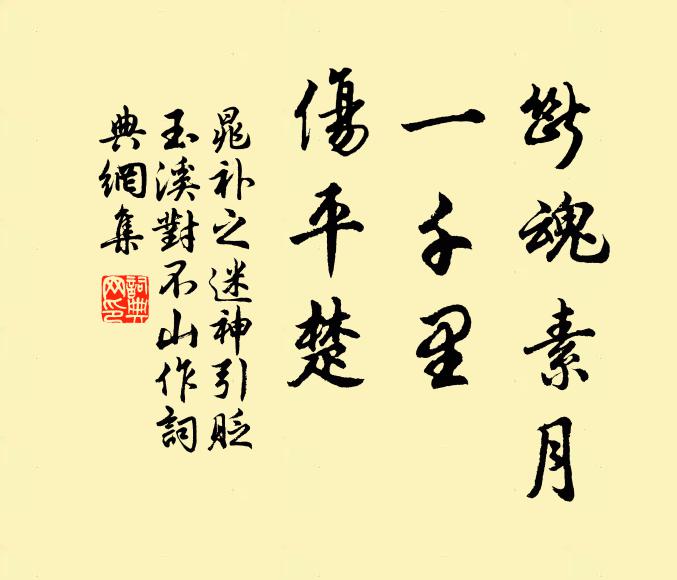 斷魂素月
一千里
傷平楚
晁补之迷神引貶
玉溪對不山作詞
典網集
詞典网印